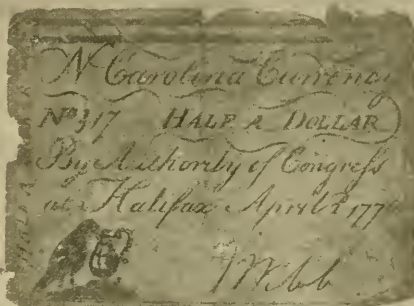 N Carolina Currency
No 317 HALF A DOLLAR
By Authority of Congress
at Halifax April 2 177
HALF A